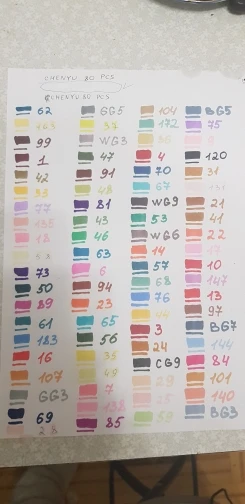 CHENYU 80 PCS
CHENYU 80 PCS
62 GG5 104 BG5
163 37 172 75
99 WG3 9
1 47 4 120
42 91 70 31
33 48 67
77 81 WG9 21
135 43 53 41
18 46 WG6 22
63 14 17
73 6 57 10
50 94 68 147
89 23 76 13
61 65 44 97
183 56 3 BG7
16 35 24 144
107 49 CG9 84
GG3 7 29 101
69 138 25 140
28 85 59 BG3